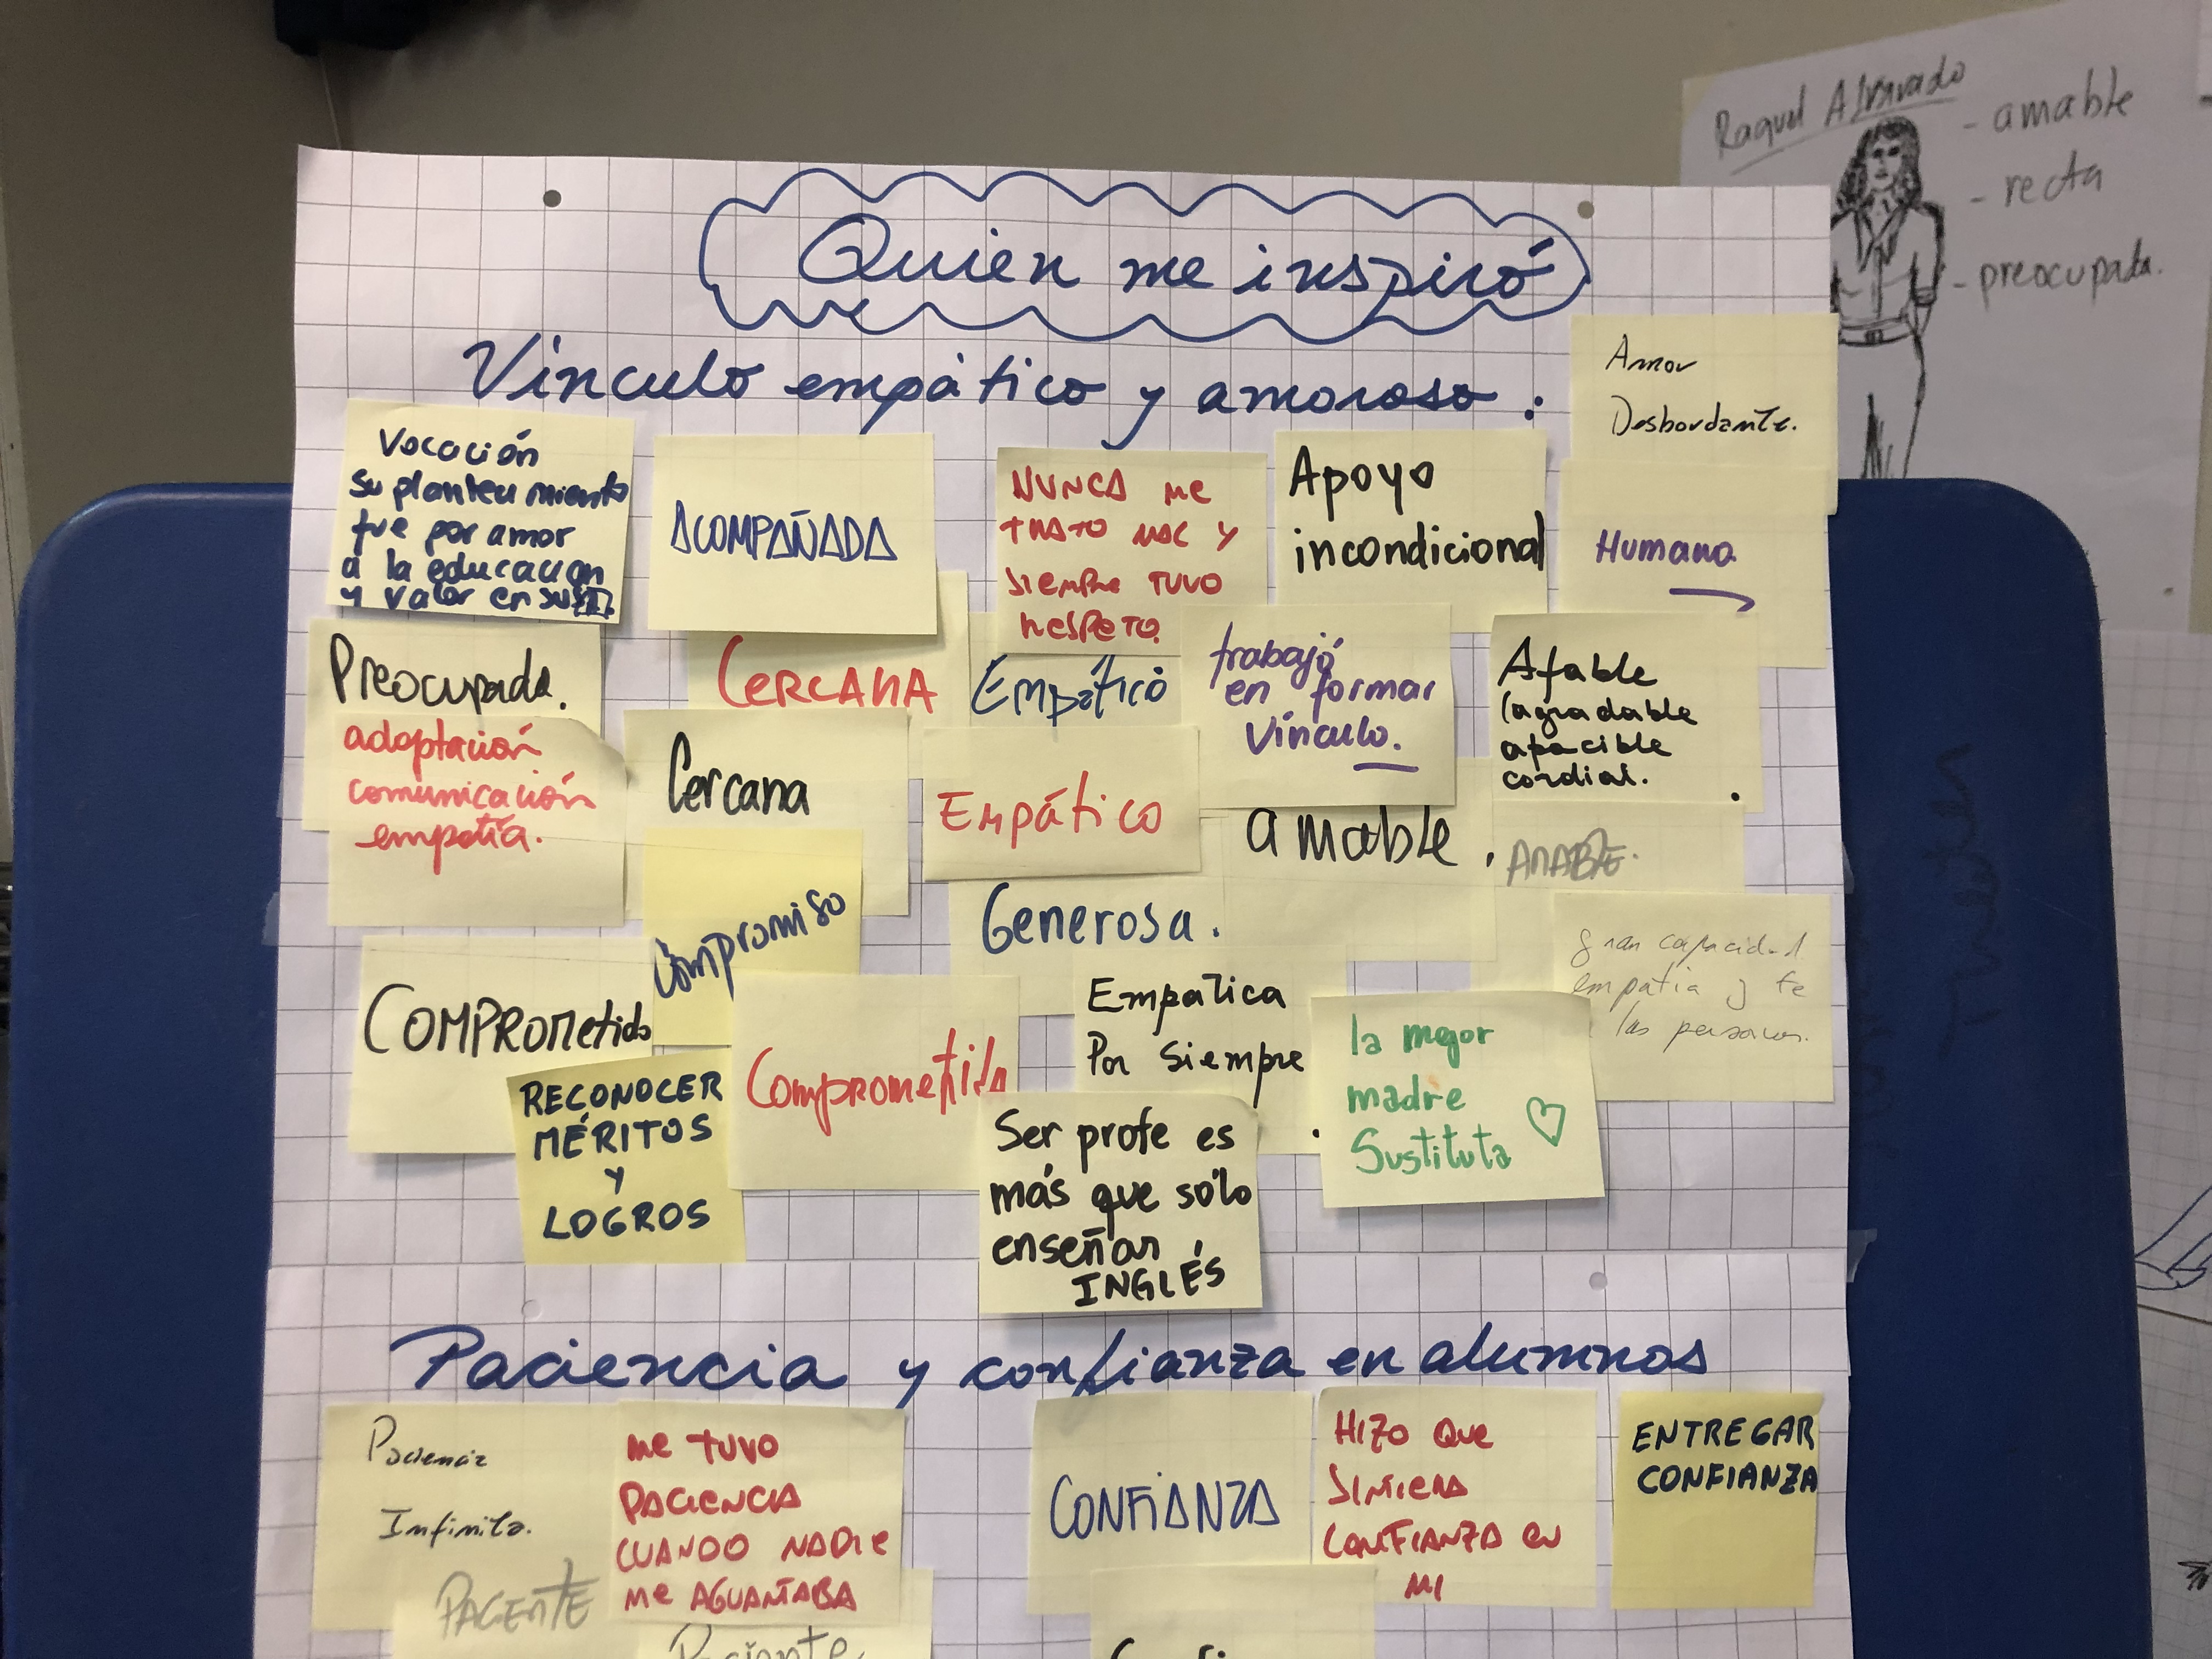 Raquel Alvarado
- amable
- recta
- preocupada.
Quien me inspiró
Vínculo empático y amoroso :
Amor
Desbordante.
Vocación
su planteamiento
fue por amor
a la educación
y valor en su
ACOMPAÑADA
NUNCA me
TRATO MAL y
siempre TUVO
RESPETO.
Apoyo
incondicional
Humana
Preocupada.
CERCANA
Empático
trabajó
en formar
vínculo.
Afable
(agradable
apacible
cordial.
adaptación
comunicación
empatía.
Cercana
Empático
amable.
AMABLE.
Compromiso
Generosa.
gran capacidad
empatía y fe
las personas.
COMPROMetido
Comprometida
Empatica
Por siempre
la mejor
madre
Sustituta
RECONOCER
MÉRITOS
Y
LOGROS
Ser profe es
más que sólo
enseñar
INGLÉS
Paciencia y confianza en alumnos
Paciencia
Infinita.
me TUVO
PACIENCIA
CUANDO NADIE
me AGUANTABA
CONFIANZA
HIZO QUE
SINTIERA
CONFIANZA EN
MI
ENTREGAR
CONFIANZA
PACIENTE
Paciente